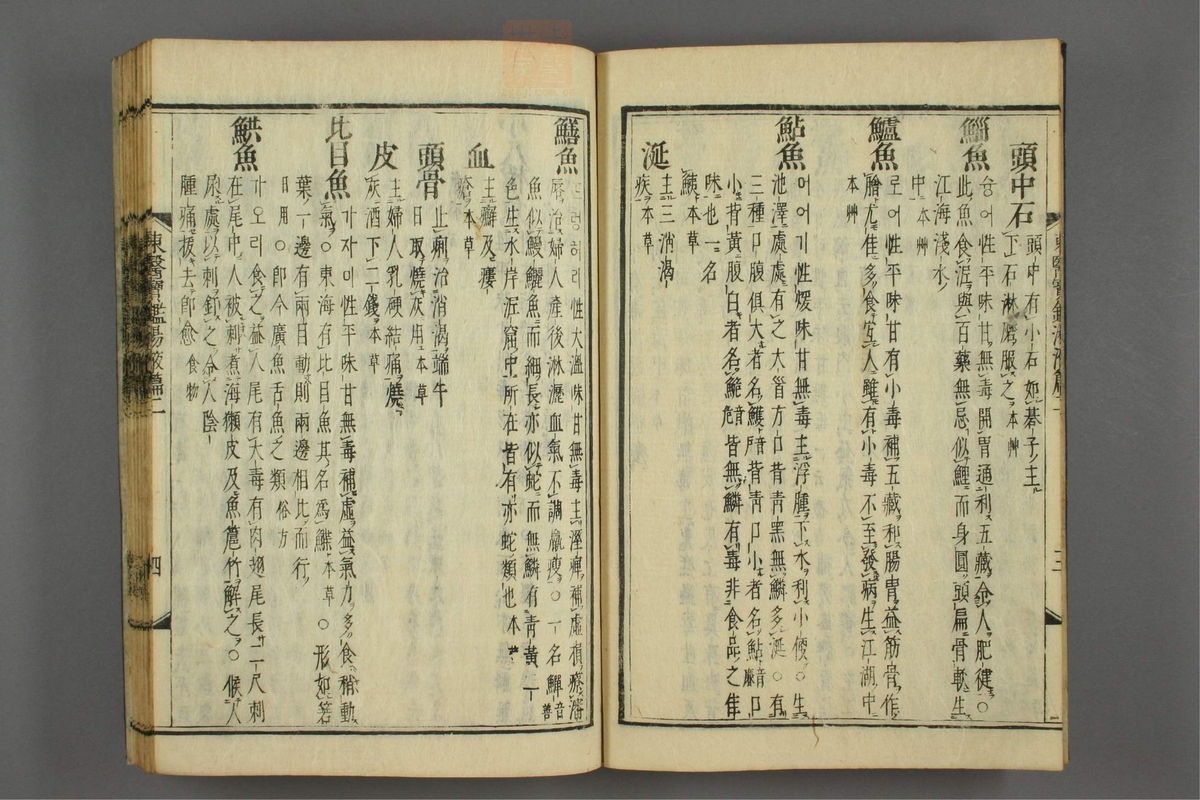 頭中石
頭中有小石如碁子主
下石淋磨服之本艸
鯔魚
숭어性平味甘無毒開胃通利五藏令人肥健○
此魚食泥與百藥無忌似鯉而身圓頭扁骨軟生
江海淺水
中本艸
鱸魚
로어性平味甘有小毒補五藏和腸胃益筋骨作
膾尤佳多食宜人雖有小毒不至發病生江湖中
本艸
鮎魚
머어기性煖味甘無毒主浮腫下水利小便○生
池澤處處有之大首方口背靑黑無鱗多涎○有
三種口腹俱大者名鱯音背靑口小者名鮎音口
小背黃腹白者名鮠音危皆無鱗有毒非食品之佳
味也一名
鮧本草
涎
主三消渴
疾本草
鱔魚
드렁허리性大溫味甘無毒主溼痺補虛損瘡瀋
脣治婦人產後淋瀝血氣不調羸瘦○一名鱓音善
魚似鰻鱺魚而細長亦似蛇而無鱗有靑黃二
色生水岸泥窟中所在皆有亦蛇類也本艸
血
主癬及瘻
瘡本草
頭骨
止痢治消渴端午
日取燒灰用本草
皮
主婦人乳硬結痛燒
灰酒下二錢本草
比目魚
가자미性平味甘無毒補虛益氣力多食稍動
氣○東海有比目魚其名爲鰈本草○形如箬
葉一邊有兩目動則兩邊相比而行
日用○卽今廣魚舌魚之類俗方
鮰魚
가오리食之益人尾有大毒有肉翅尾長二尺刺
在尾中人被刺煮海獺皮及魚扈竹解之○候人
尿處以刺釘之令人陰
腫痛拔去卽愈食物
東醫寶鑑湯液篇二
三
四